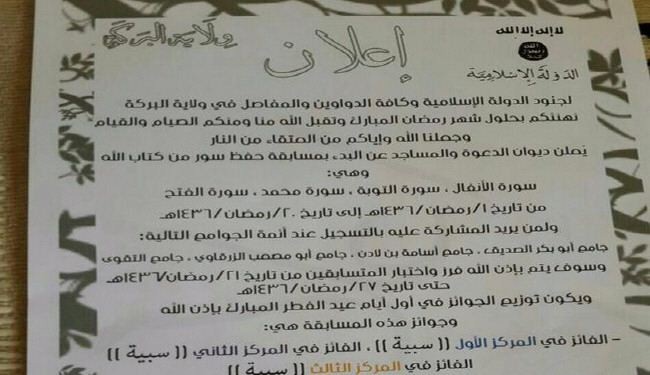 لا إله إلا الله
الله
رسول
الدولة الإسلامية
إعلان
ولاية البركة
لجنود الدولة الإسلامية وكافة الدواوين والمفاصل في ولاية البركة
نهنئكم بحلول شهر رمضان المبارك وتقبل الله منا ومنكم الصيام والقيام
وجعلنا الله وإياكم من العتقاء من النار
يُعلن ديوان الدعوة والمساجد عن البدء بمسابقة حفظ سور من كتاب الله
وهي:
سورة الأنفال ، سورة التوبة ، سورة محمد ، سورة الفتح
من تاريخ ١/رمضان/١٤٣٦هـ إلى تاريخ ٢٠/رمضان/١٤٣٦هـ
ولمن يريد المشاركة عليه بالتسجيل عند أئمة الجوامع التالية:
جامع أبو بكر الصديق ، جامع أسامة بن لادن ، جامع أبو مصعب الزرقاوي ، جامع التقوى
وسوف يتم بإذن الله فرز واختبار المتسابقين من تاريخ ٢١/رمضان/١٤٣٦هـ
حتى تاريخ ٢٧/رمضان/١٤٣٦هـ
ويكون توزيع الجوائز في أول أيام عيد الفطر المبارك بإذن الله
وجوائز هذه المسابقة هي:
- الفائز في المركز الأول (( سبية )) ، الفائز في المركز الثاني (( سبية ))
الفائز في المركز الثالث (( سبية ))